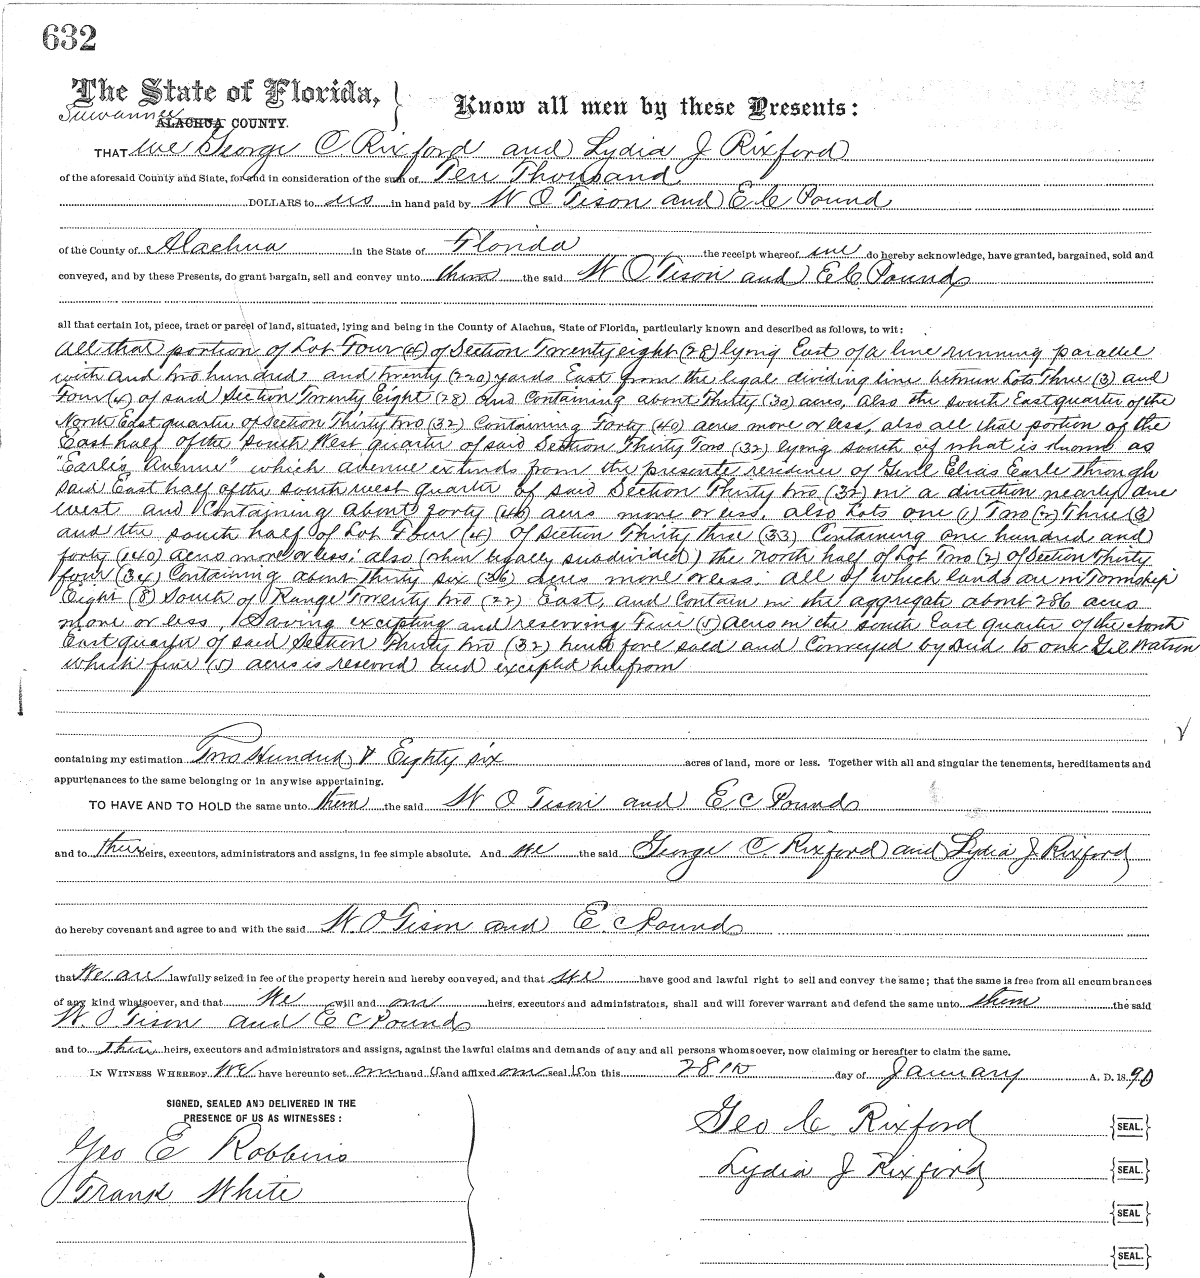 632
The State of Florida,
Suwannee
ALACHUA COUNTY.
Know all men by these Presents:
THAT We George C Rixford and Lydia J Rixford
of the aforesaid County and State, for and in consideration of the sum of Ten Thousand
DOLLARS to us in hand paid by W O Tison and E C Pound
of the County of Alachua in the State of Florida the receipt whereof we do hereby acknowledge, have granted, bargained, sold and
conveyed, and by these Presents, do grant bargain, sell and convey unto them the said W O Tison and E C Pound
all that certain lot, piece, tract or parcel of land, situated, lying and being in the County of Alachua, State of Florida, particularly known and described as follows, to wit:
All that portion of Lot Four (4) of Section Twenty eight (28) lying East of a line running parallel
with and two hundred and twenty (220) yards East from the legal dividing line between Lots Three (3) and
Four (4) of said Section Twenty Eight (28) and Containing about Thirty (30) acres, also the south East quarter of the
North East quarter of Section Thirty two (32) Containing Forty (40) acres more or less, also all that portion of the
East half of the South West quarter of said Section Thirty Two (32) lying south of what is known as
"Earle's Avenue" which avenue extends from the present residence of Genl Elias Earle through
said East half of the south west quarter of said Section Thirty two (32) in a direction nearly due
west and Containing about forty (40) acres more or less, also Lots one (1) Two (2) Three (3)
and the south half of Lot Four (4) of Section Thirty three (33) Containing one hundred and
forty (140) acres more or less; also (when legally subdivided) the North half of Lot Two (2) of Section Thirty
four (34) Containing about Thirty six (36) acres more or less; all of which lands are in Township
Eight (8) South of Range Twenty two (22) East, and contain in the aggregate about 286 acres
more or less, Saving excepting and reserving Five (5) acres in the south East quarter of the North
East quarter of said Section Thirty two (32) heretofore sold and Conveyed by Deed to one Watson
which five (5) acres is reserved and excepted herefrom
containing my estimation Two Hundred & Eighty six acres of land, more or less. Together with all and singular the tenements, hereditaments and
appurtenances to the same belonging or in anywise appertaining.
TO HAVE AND TO HOLD the same unto them the said W O Tison and E C Pound
and to their heirs, executors, administrators and assigns, in fee simple absolute. And we the said George C Rixford and Lydia J Rixford
do hereby covenant and agree to and with the said W. O Tison and E. C Pound
that We are lawfully seized in fee of the property herein and hereby conveyed, and that we have good and lawful right to sell and convey the same; that the same is free from all encumbrances
of any kind whatsoever, and that We will and our heirs, executors and administrators, shall and will forever warrant and defend the same unto them the said
W. O Tison and E C Pound
and to their heirs, executors and administrators and assigns, against the lawful claims and demands of any and all persons whomsoever, now claiming or hereafter to claim the same.
IN WITNESS WHEREOF We have hereunto set our hand s and affixed our seal s on this 28th day of January A. D. 1890
SIGNED, SEALED AND DELIVERED IN THE
PRESENCE OF US AS WITNESSES:
Geo E Robbins
Frank White
Geo C. Rixford {SEAL.}
Lydia J Rixford {SEAL.}
{SEAL}
{SEAL.}